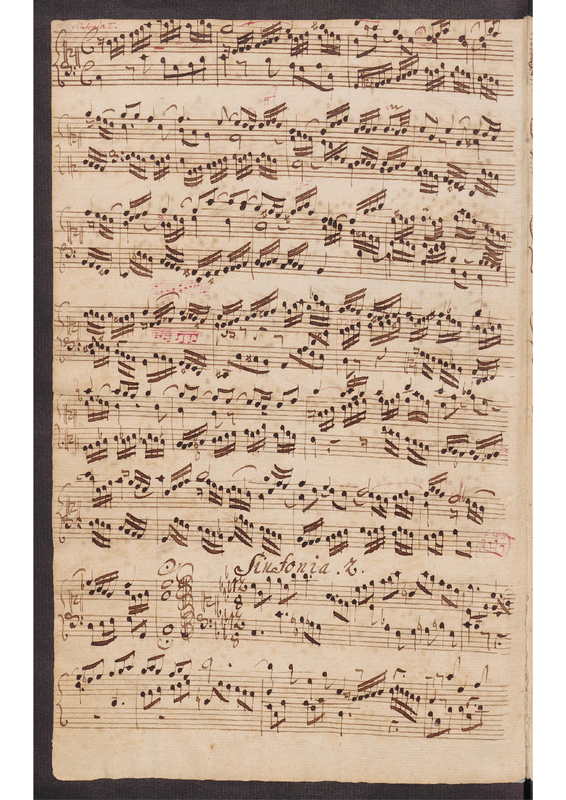 Sinfonia. 2.